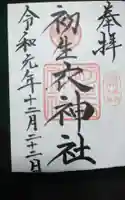 奉拝
初生衣神社
令和元年十二月二十二日